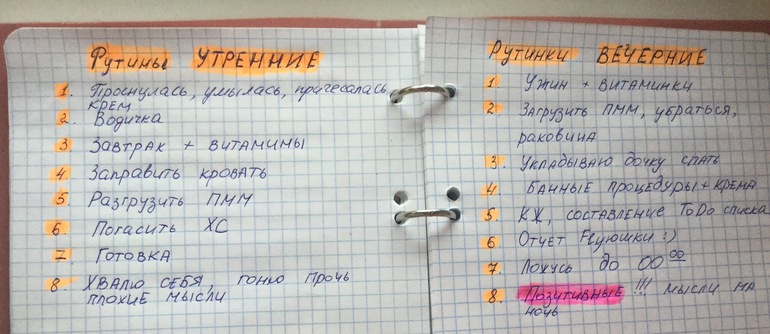 Рутины УТРЕННИЕ
1. Проснулась, умылась, причесалась,
крем
2. Водичка
3 Завтрак + витамины
4 Заправить кровать
5. Разгрузить ПММ
6 Погасить ХС
7. Готовка
8. Хвалю себя, гоню прочь
плохие мысли
Рутинки ВЕЧЕРНИЕ
1. Ужин + витаминки
2 Загрузить ПММ, убраться,
раковина
3. Укладываю дочку спать
4 Банные процедуры + крема
5 КЖ, составление ToDo списка
6 Отчет Flyюшки :)
7. Ложусь до 00 00
8. Позитивные !!! мысли на
ночь